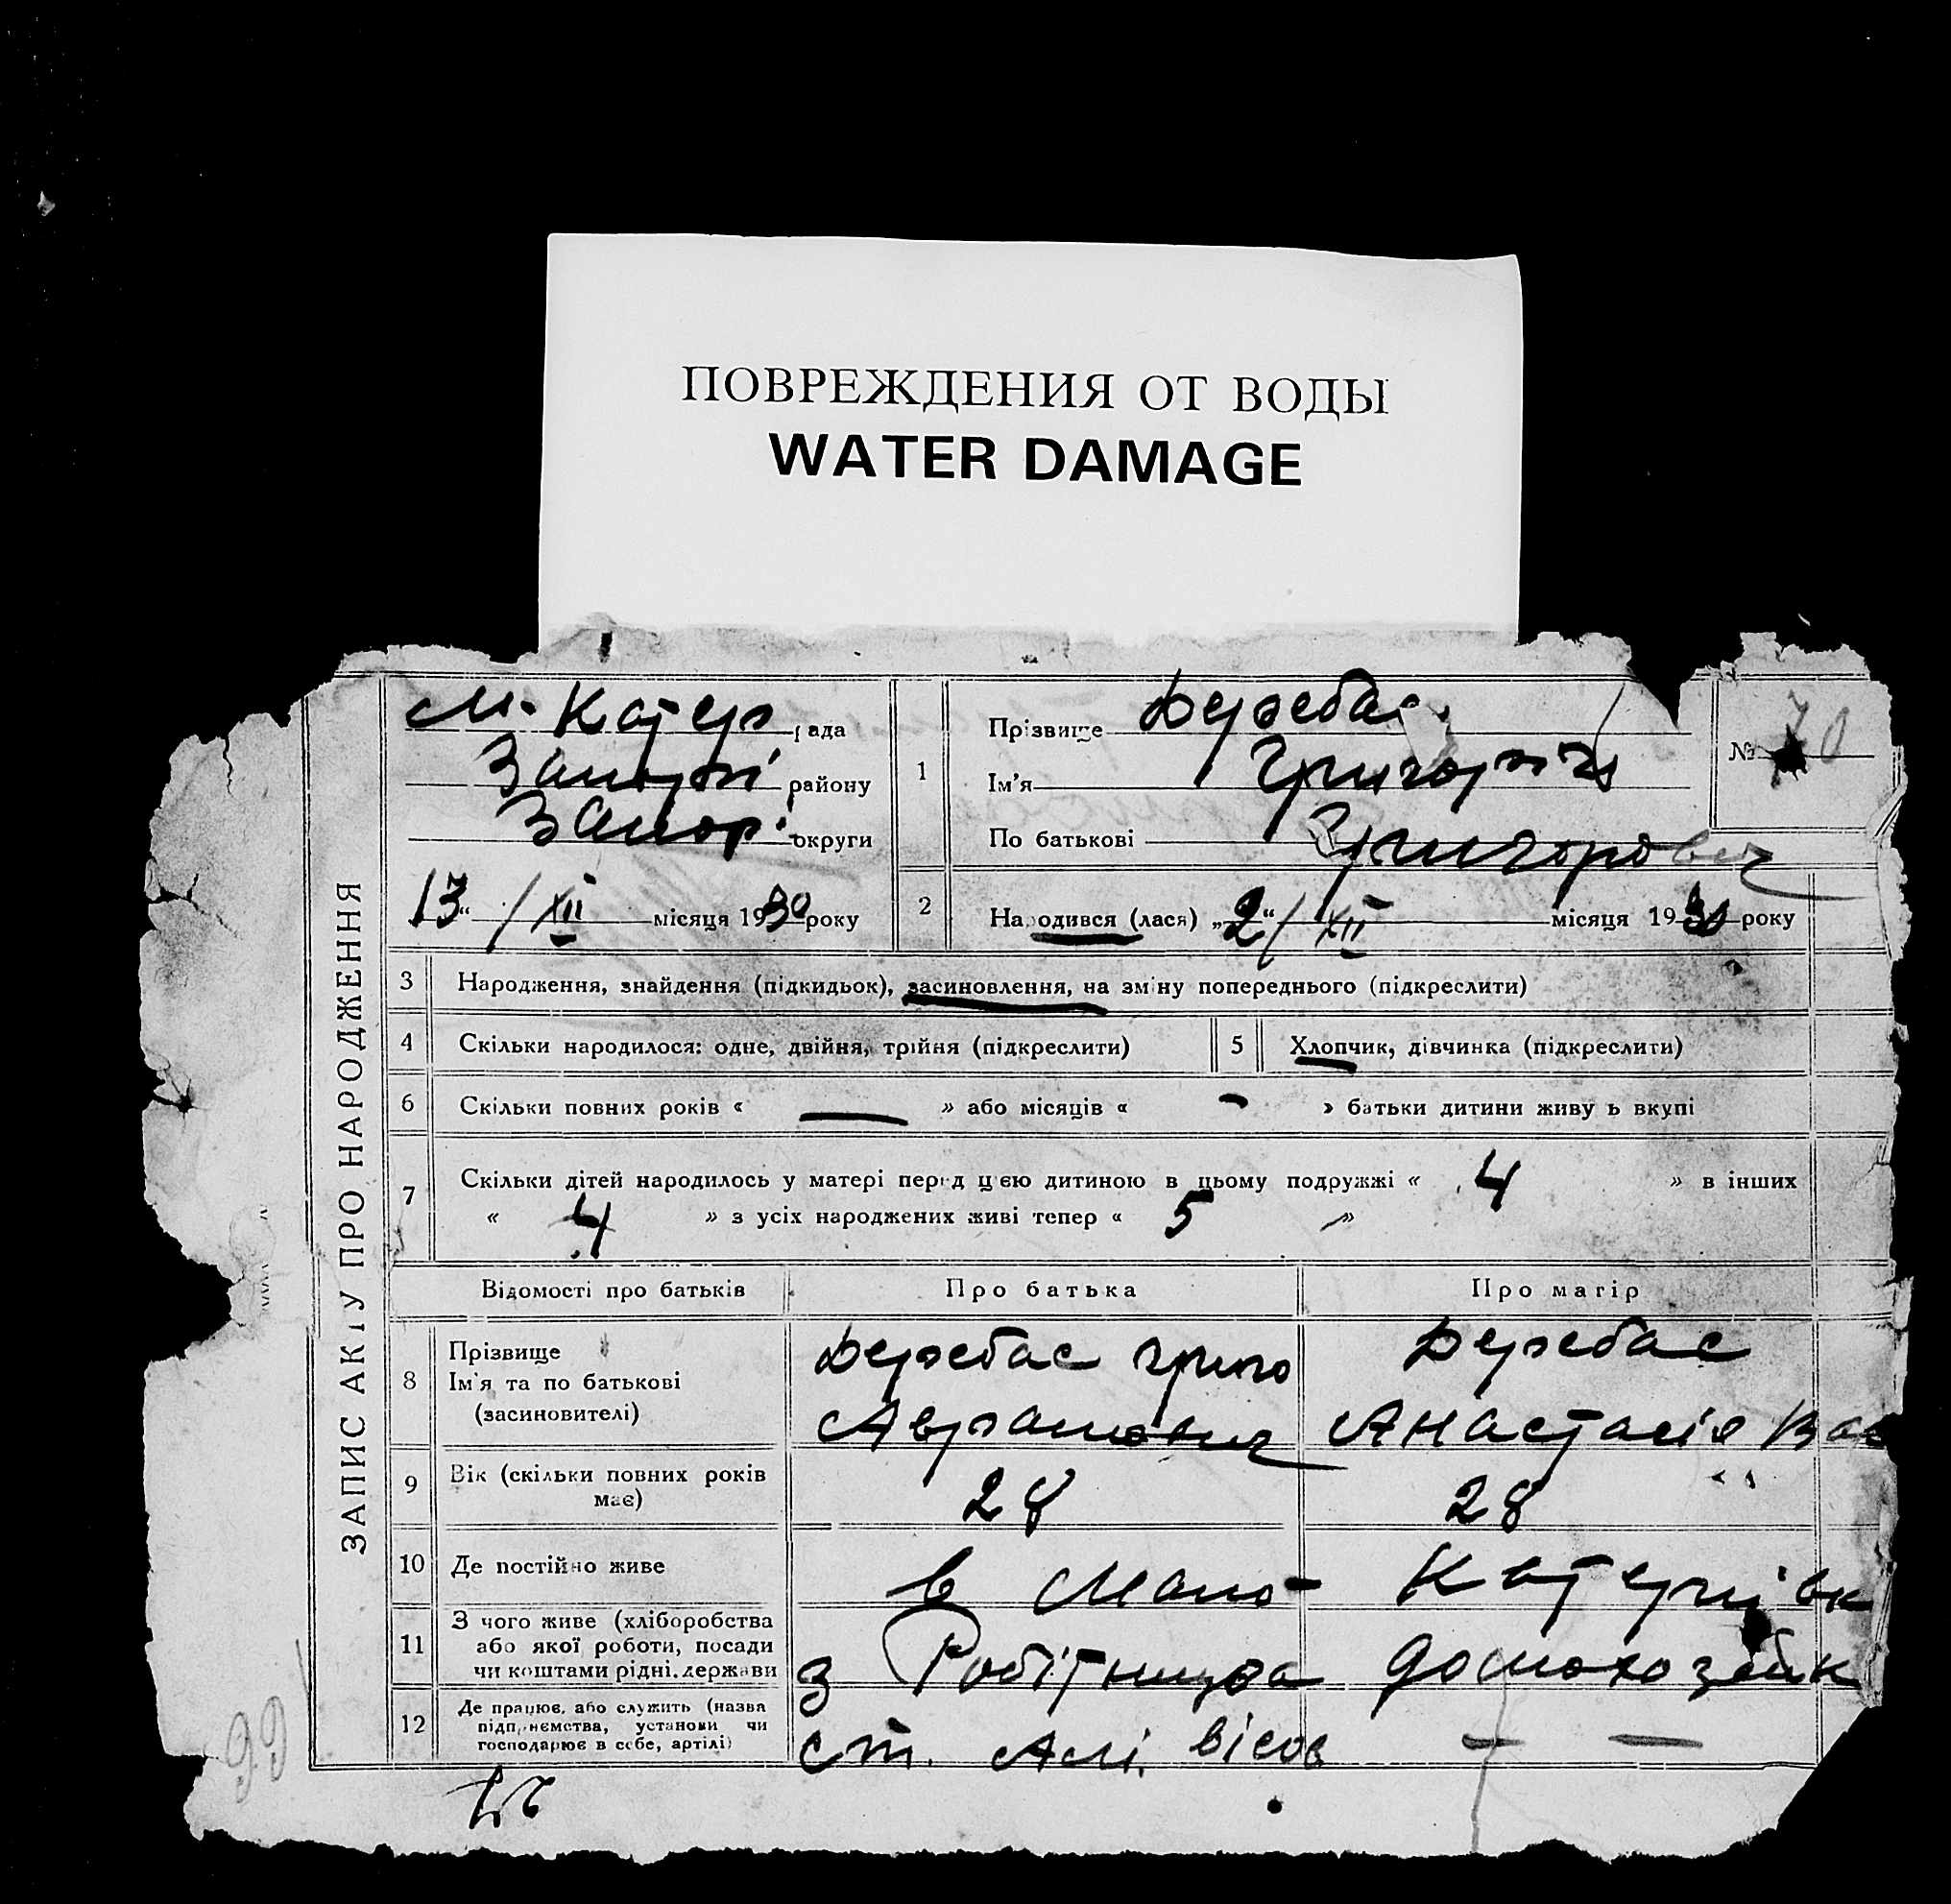 ПОВРЕЖДЕНИЯ ОТ ВОДЫ
WATER DAMAGE
ЗАПИС АКТУ ПРО НАРОДЖЕННЯ
м. Катер рада
району
Запор. округи
13 “ / XII місяця 1930 року
1
Прізвище Деребас
Ім'я Григорій
По батькові Григорович
№ 70
2
Народився (лася) „2“ / XII місяця 1930 року
3 Народження, знайдення (підкидьок), засиновлення, на зміну попереднього (підкреслити)
4 Скільки народилося: одне, двійня, трійня (підкреслити) 5 Хлопчик, дівчинка (підкреслити)
6 Скільки повних років « — » або місяців « - » батьки дитини живуть вкупі
7 Скільки дітей народилось у матері перед цією дитиною в цьому подружжі « 4 » в інших
« 4 » з усіх народжених живі тепер « 5 »
Відомості про батьків Про батька Про матір
8 Прізвище
Ім'я та по батькові
(засиновителі)
Деребас Григо
Аврамович
Деребас
Анастасія Вас
9 Вік (скільки повних років
має)
28
28
10 Де постійно живе
в Мало- Катернівк
11 З чого живе (хліборобства
або якої роботи, посади
чи коштами рідні, держави
з Робітництва
домохозяйк
12 Де працює, або служить (назва
підприємства, установи чи
господарює в себе, артілі)
ст.
— —
99